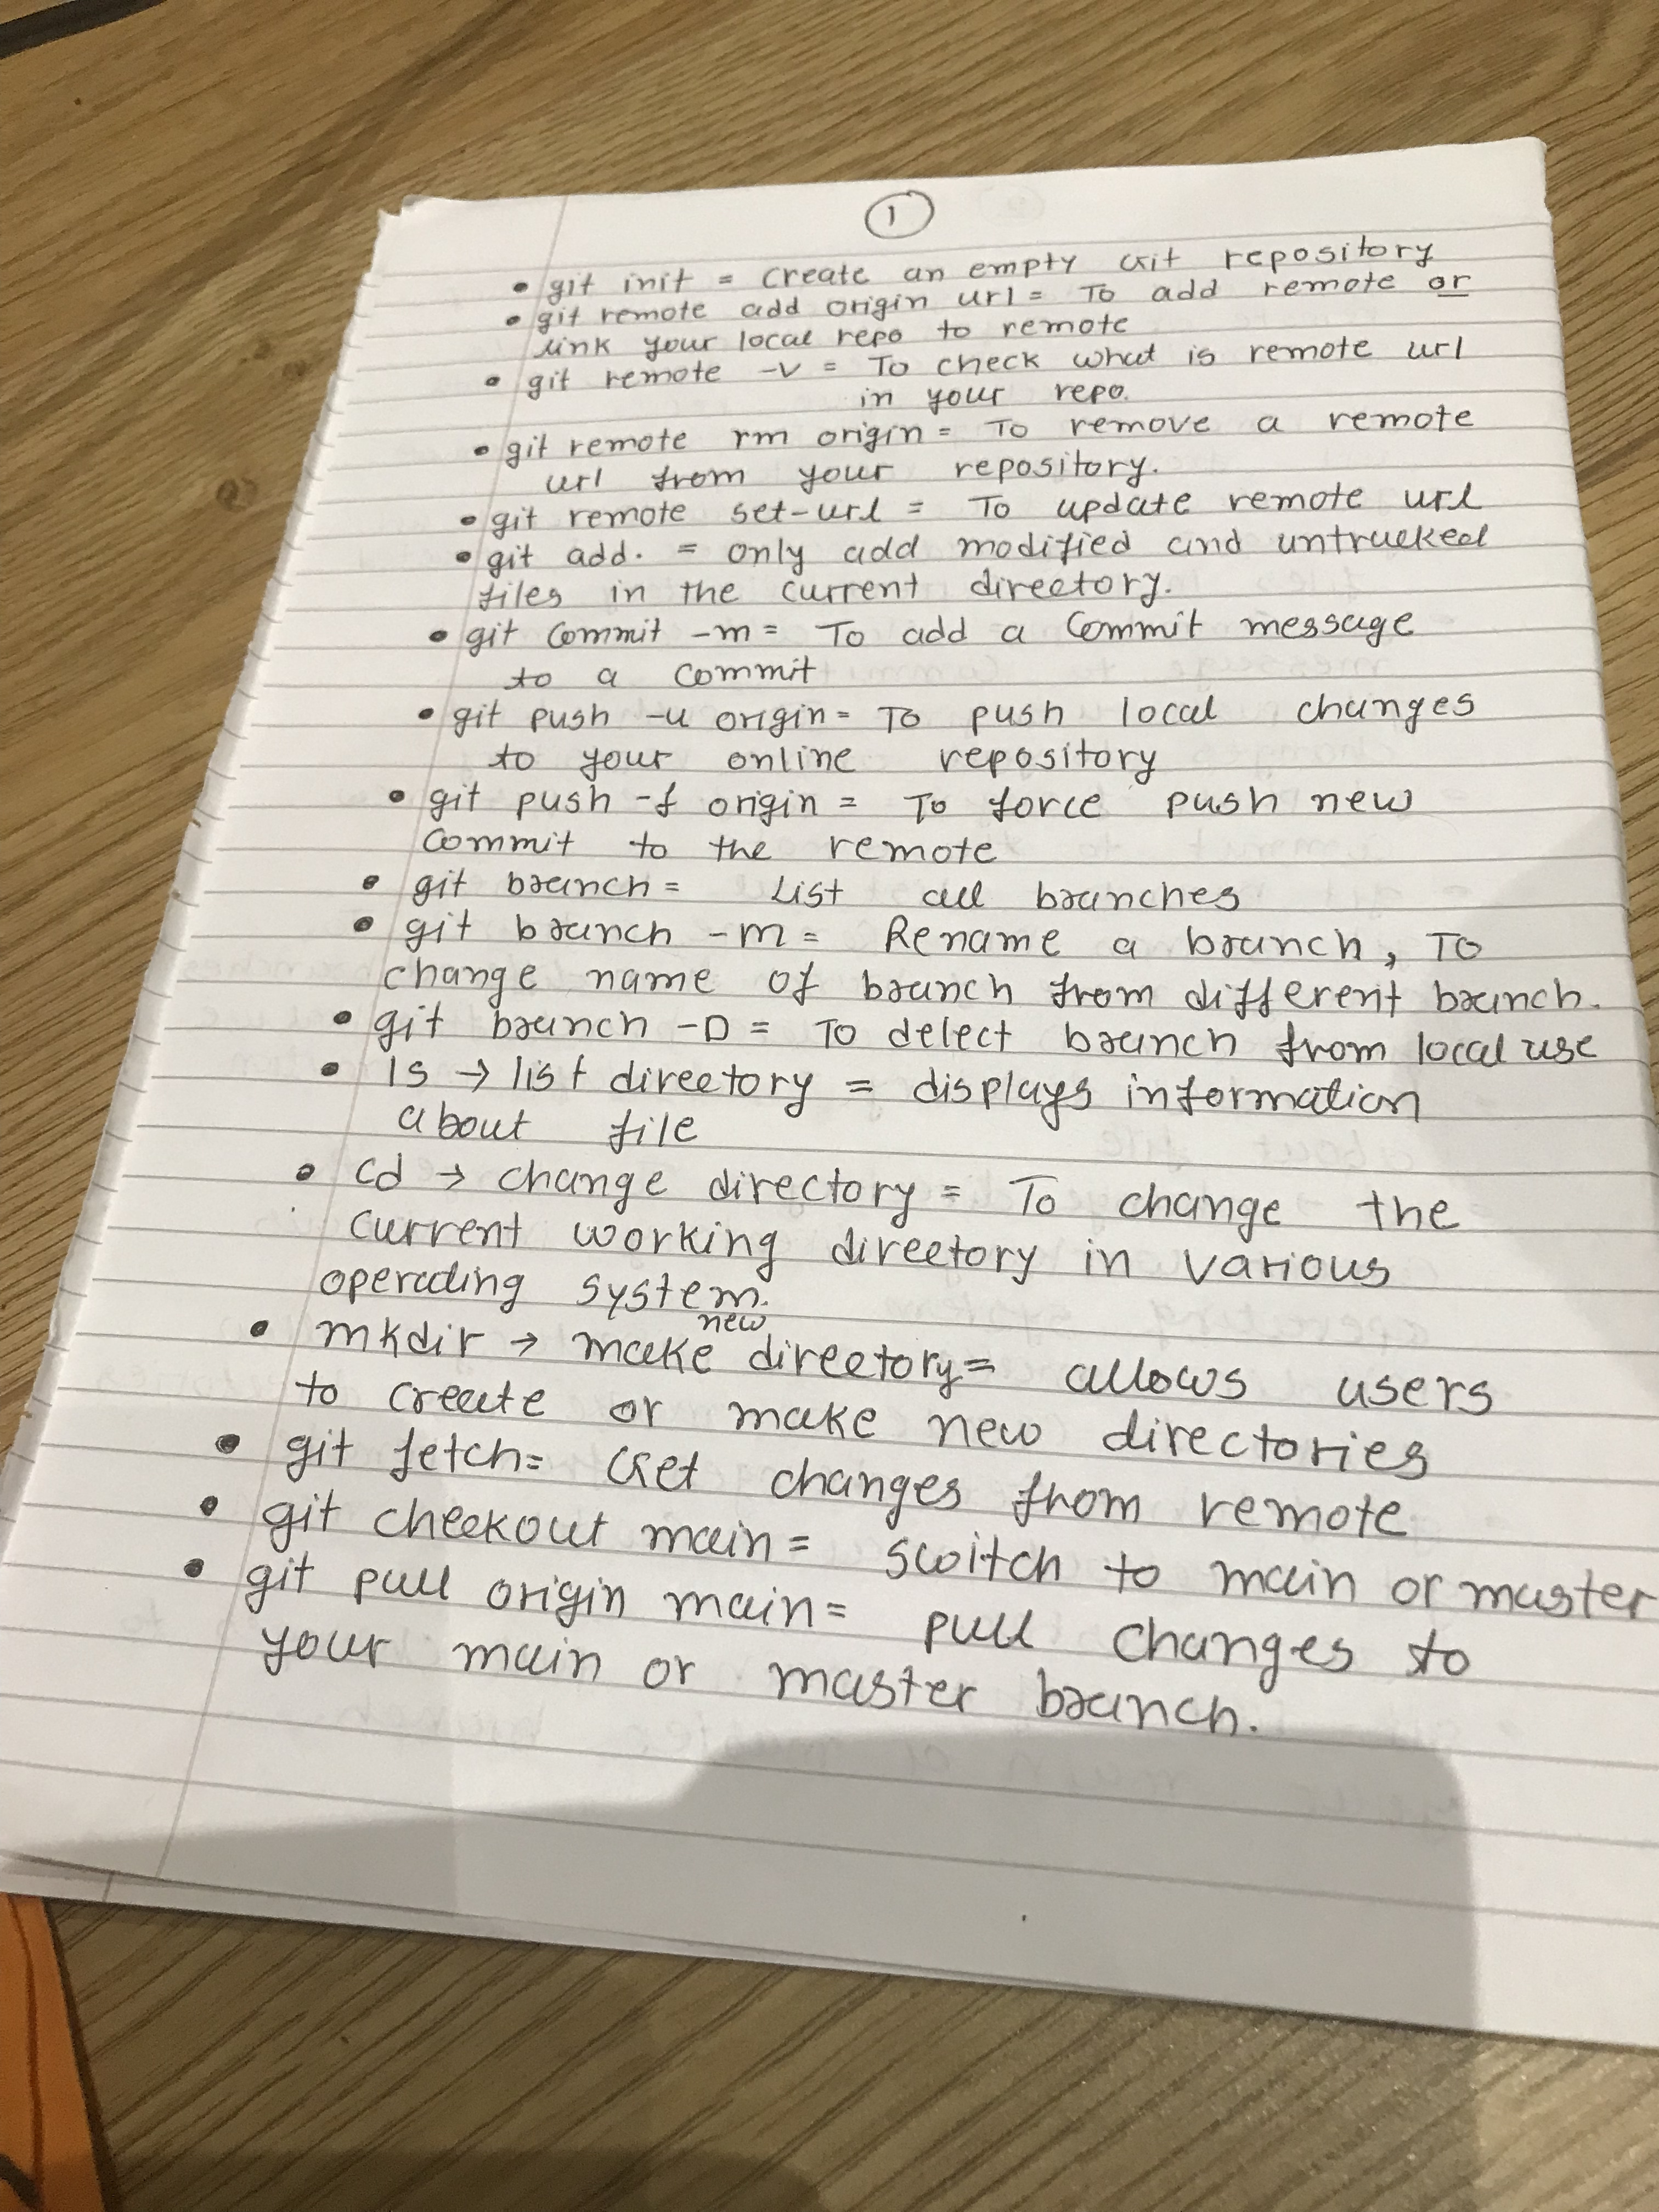 1
• git init = Create an empty Git repository
• git remote add origin url = To add remote or
link your local repo to remote
• git remote -v = To check what is remote url
in your repo.
• git remote rm origin = To remove a remote
url from your repository.
• git remote set-url = To update remote url
• git add. = only add modified and untracked
files in the current directory.
• git commit -m = To add a commit message
to a commit
• git push -u origin = To push local changes
to your online repository
• git push -f origin = To force push new
commit to the remote
• git branch = List all branches
• git branch -m = Rename a branch, To
change name of branch from different branch.
• git branch -D = To delect branch from local use
• ls → list directory = displays information
about file
• cd → change directory = To change the
current working directory in various
operating system.
new
• mkdir → make directory = allows users
to create or make new directories
• git fetch = Get changes from remote
• git checkout main = switch to main or master
• git pull origin main = pull changes to
your main or master branch.